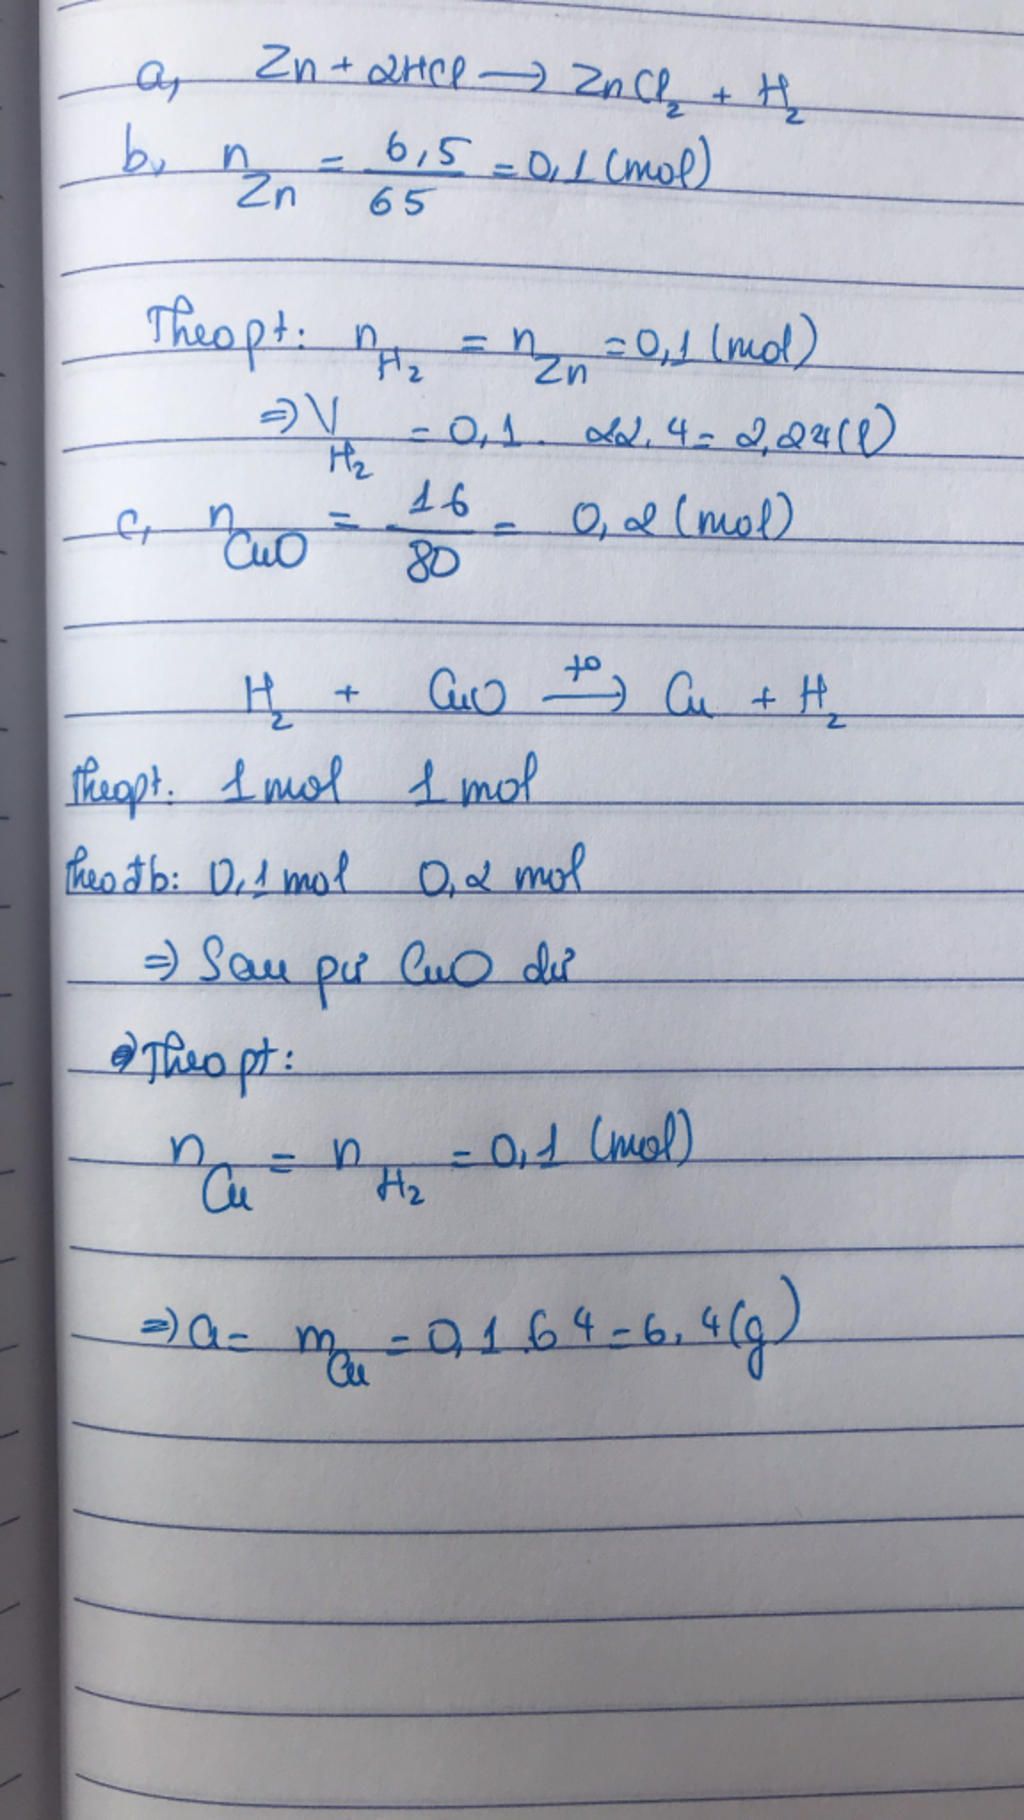 a, Zn + 2HCl → ZnCl₂ + H₂
b, n Zn = 6,5 / 65 = 0,1 (mol)
Theo pt: n H₂ = n Zn = 0,1 (mol)
⇒ V H₂ = 0,1 . 22,4 = 2,24 (l)
c, n CuO = 16 / 80 = 0,2 (mol)
H₂ + CuO →(t°) Cu + H₂
theo pt: 1 mol 1 mol
theo đb: 0,1 mol 0,2 mol
⇒ Sau pư CuO dư
⇒ Theo pt:
n Cu = n H₂ = 0,1 (mol)
⇒ a = m Cu = 0,1 . 64 = 6,4 (g)